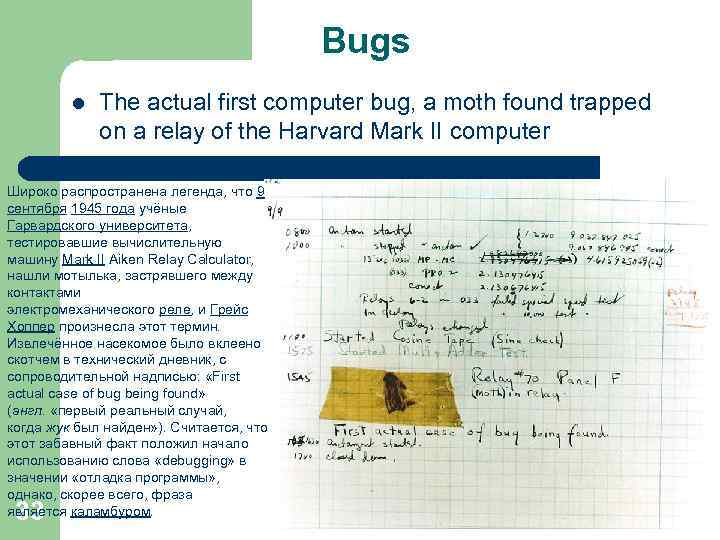 Bugs
The actual first computer bug, a moth found trapped
on a relay of the Harvard Mark II computer
Широко распространена легенда, что 9
сентября 1945 года учёные
Гарвардского университета,
тестировавшие вычислительную
машину Mark II Aiken Relay Calculator,
нашли мотылька, застрявшего между
контактами
электромеханического реле, и Грейс
Хоппер произнесла этот термин.
Извлечённое насекомое было вклеено
скотчем в технический дневник, с
сопроводительной надписью: «First
actual case of bug being found»
(англ. «первый реальный случай,
когда жук был найден»). Считается, что
этот забавный факт положил начало
использованию слова «debugging» в
значении «отладка программы»,
однако, скорее всего, фраза
является каламбуром.
33
9/9
0800 antan started
1000 stopped - antan
13" uc (033) MP - MC
(033) PRO 2 2.130476415
correct 2.130676415
Relays 6-2 in 033 failed special speed test
in relay 10.000 test.
Relays changed
1100 Started Cosine Tape (Sine check)
1525 Started Multi Adder Test.
1545 Relay #70 Panel F
(moth) in relay.
First actual case of bug being found.
antangent started.
1700 closed down.